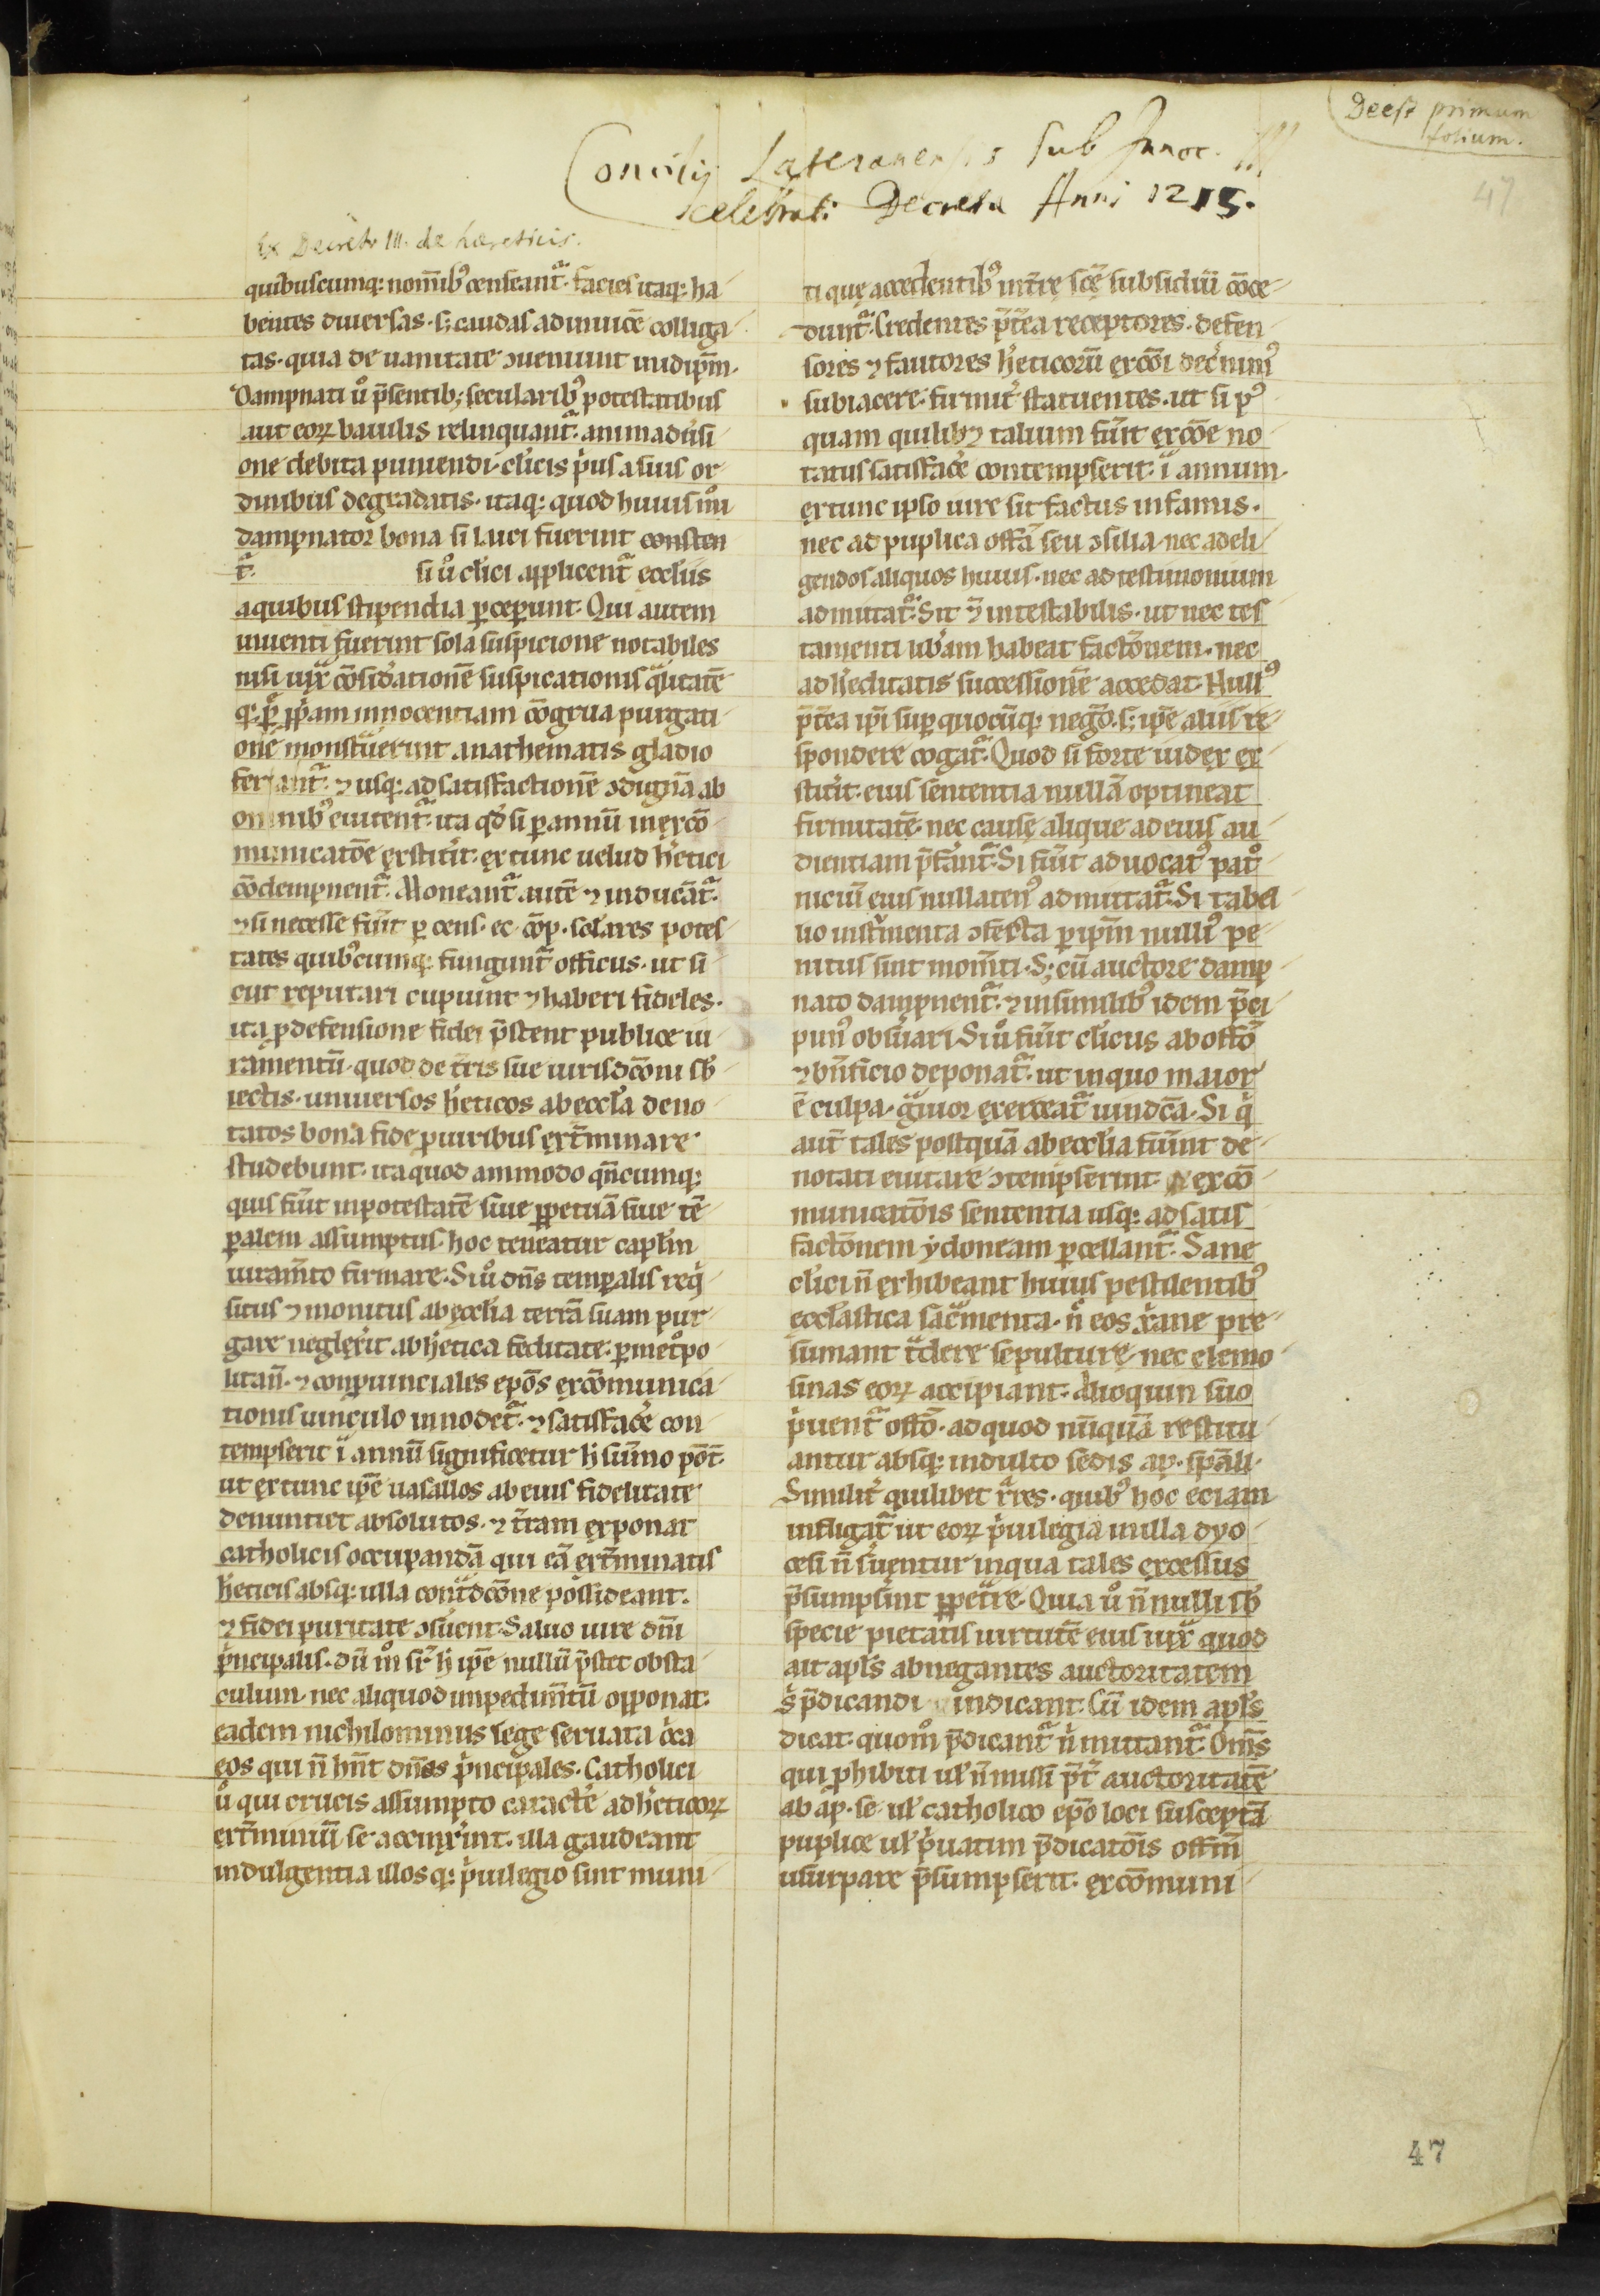 Deest primum
folium.
47
Concilij Lateranensis sub Innoc. III
celebrati Decreta Anni 1215.
Ex Decreto III. de hæreticis.
quibuscumq; nom̄ibꝰ censeant᷑. facies itaq; ha-
bentes diuersas. sꝫ caudas adinuicē colliga-
tas. quia de uanitate ꝯueniunt inidip̄m.
Dampnati ů p̄sentibꝫ secularibꝰ potestatibus
aut eoꝝ bauilis relinquant᷑. animadu̓si-
one debita puniendi. cl̓icis p̓us a suis or-
dinibus degradatis. itaq; quod huius mͦi
dampnator bona si laici fuerint consten
t᷑. si ů cl̓ici applicent᷑ eccl̓iis
aquibus stipendia ꝑceperunt. Qui autem
inuenti fuerint sola suspicione notabiles
nisi iuxͣ cōsid̓ationē suspicationis qͣlitatē
q; ꝑsone ꝓpͥam innocentiam cōgrua purgati-
onē monstͣuerint anathematis gladio
feriant᷑. ⁊ usq; ad satisfactionē ꝯdignā ab
omnibꝰ euitent᷑. ita qd̓ si ꝑ annū inexcō-
municatōe exstit̓it. ex tunc uelud h̓etici
cōdempnent᷑. Moneant᷑ autē ⁊ inducāt᷑.
⁊ si necesse fu̓it ꝑ cens. ec. cōp. sclares potes-
tates quibꝰcumq; fungunt᷑ officiis. ut si-
cut reputari cupiunt ⁊ haberi fideles.
ita ꝓ defensione fidei p̄stent publice iu-
ramentū. quod de t̄ris sue iurisdc̄oni sb̓-
iectis. uniuersos h̓eticos ab eccl̓a deno-
tatos bona fide ꝓ uiribus ext̓minare
studebunt. ita quod ammodo qn̄cumq;
quis fu̓it inpotestatē siue ꝑpetuā siue tē-
ꝑalem assumptus. hoc teneatur capl̓m
iuram̄to firmare. Si ů dn̄s temꝑalis reqͥ-
situs ⁊ monitus ab eccl̓ia terrā suam pur-
gare neglex̓it ab h̓etica feditate. ꝑ metͦpo-
litan̄. ⁊ conꝓuinciales ep̄os excōmunica-
tionis uinculo innodet᷑. ⁊ satisfac̓e con-
tempserit ī annū significetur h̓ sūmo pōt.
ut extunc ip̄e uasallos ab eius fidelitate
denuntiet absolutos. ⁊ t̄ram exponat
catholicis occupandā qui eā ext̓minatis
h̓eticis absq; ulla contͣdcōne possideant.
⁊ fidei puritate ꝯsu̓ent. Saluo iure dn̄i
p̓ncipalis. dū mͦ sr̄ h̓ ip̄e nullū p̄stet obsta-
culum. nec aliquod impedim̄tū opponat.
eadem nichilominus lege seruata c̓ca
eos qui n̄ hn̄t dn̄os p̓ncipales. Catholici
ů qui crucis assumpto caract̓e ad h̓eticoꝝ
ext̓miniū se accinx̓int. illa gaudeant
indulgentia illos q; p̓uilegio sint muni-
ti quę accedentibꝰ int̓rę scę̄ subsidiū cōce-
dunt᷑. Credentes p̄t̓ea receptores. defen-
sores ⁊ fautores h̓eticorū excōi dec̓nimꝰ
subiacere. firmit̓ statuentes. ut si pꝰ-
quam quilibꝫ talium fu̓it excōe no-
tatus satisfac̓e contempserit ī annum.
extunc ipso iure sit factus infamis.
nec ad puplica offā seu ꝯsilia. nec adeli-
gendos aliquos huius. nec ad testimonium
admittat᷑. Sit ⁊ intestabilis. ut nec tes-
tamenti lib̓am habeat factōnem. nec
ad h̓editatis successionē accedat. Nullꝰ
p̄t̓ea ip̄i suꝑ quocūq; neg̓o. sꝫ ip̄e aliis re-
spondere cogat᷑. Quod si forte iudex ex-
stit̓it. eius sententia nullā optineat
firmitatē. nec causę alique ad eius au-
dientiam p̄fer̄ant᷑. Si fu̓it aduocatꝰ patͦ-
niciū eius nullatenꝰ admittat᷑. Si tabel-
lio instͬmenta ꝯfecta ꝑ ip̄m nullꝰ pe-
nitus sint mom̄ti. Sꝫ cū auctore damp-
nato dampnent᷑. ⁊ in similibꝰ idem p̄ci-
pimꝰ obsu̓ari. Si ů fu̓it cl̓icus ab offō
⁊ bn̄ficio deponat᷑. ut in quo maior
ē culpa. gͣuior exerceat᷑ uindcā. Si qͥ
aut̄ tales postquā ab eccl̓ia fu̓int de-
notati euitare ꝯtempserint. excō-
municatōis sententia usq; ad satis-
factōnem ydoneam ꝑcellant᷑. Sane
cl̓ici n̄ exhibeant huiꝰ pestilentibꝰ
eccl̓astica sac̓menta. n̓ eos xͥane pre-
sumant tͣdere sepulturę. nec elemo-
sinas eoꝝ accipiant. alioquin suo
p̓uent᷑ offō. ad quod nūquā restitu-
antur absq; indulto sedis ap. spāli.
Similit̓ quilibet rͬres. quibꝰ hoc eciam
infligat᷑ ut eoꝝ p̓uilegia in illa dyo-
cesi n̄ su̓entur in qua tales excessus
p̄sumps̓int ꝑpetͣre. Quia ů n̄nulli sb̓
specie pietatis uirtutē eius iuxͣ quod
ait apl̓s abnegantes auctoritatem
s̓ p̄dicandi uindicant. Cū idem apl̓s
dicat. quomͦ p̄dicant᷑ n̓ mittant᷑. Om̄s
qui ꝓhibiti ul̓ n̄ missi p̄t̓ auctoritatē
ab ap̄. se. ul̓ catholico ep̄o loci susceptā
puplice ul̓ p̓uatim p̄dicatōis offm̄
usurpare p̄sumpserit. excōmuni-
47